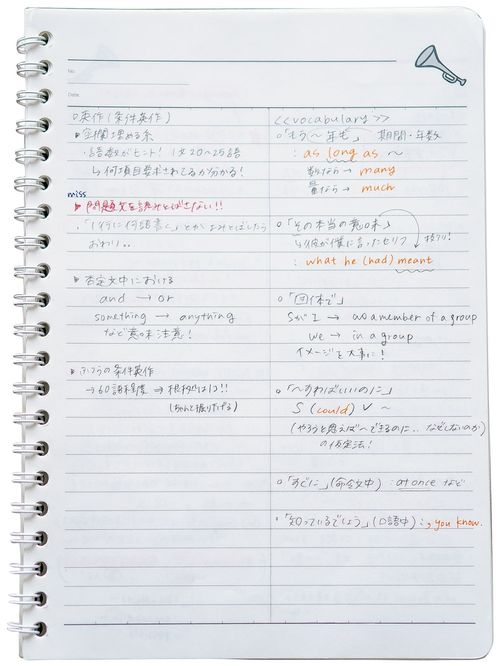 No.
Date
○英作(条件英作)
▶空欄埋める系
・語数がヒント! 1文20〜25語
↳何項目要求されてるか分かる!
miss
▶問題文を読みとばさない!!
・「1行に何語書く」とかよみとばしたら
おわり..
▶否定文中における
and → or
something → anything
など意味注意!
▶ふつうの条件英作
→60語程度 ⇒ 根拠は
<<vocabulary>>
○「もう〜年も」 期間・年数
: as long as 〜
数なら → many
量なら → much
○「その本当の意味」
↳彼が僕に言ったセリフ
: what he (had) meant
○「団体で」
Sが I → as a member of a group
we → in a group
イメージを大事に!
○「〜すればいいのに」
S (could) V 〜
(やろうと思えば〜できるのに.. なぜしないのか)
の仮定法!
○「すぐに」(命令文中) : at once など
「知っているでしょう」(口語中) : , you know.